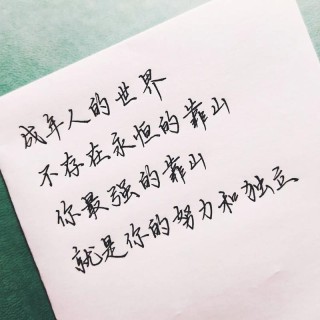 成年人的世界
不存在永恒的靠山
你最强的靠山
就是你的努力和独立